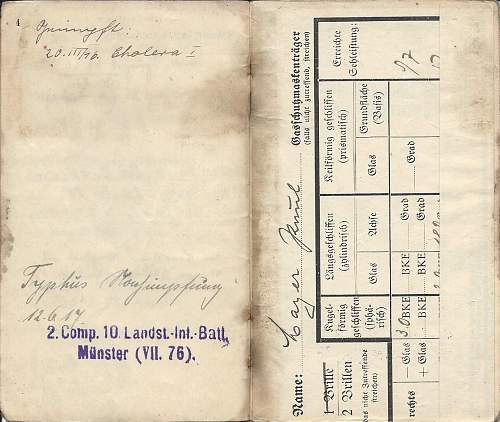 4
Geimpft.
20. III/16. Cholera I
Typhus Nachimpfung
12.6.17
2. Comp. 10. Landst.-Inf.-Batl.
Münster (VII. 76).
Name: Mayer
Gasschutzmaskenträger
(falls nicht zutreffend, streichen)
1 Brille
2 Brillen
(das nicht Zutreffende streichen)
Kugelförmig geschliffen (sphärisch)
Längsgeschliffen (zylindrisch)
Keilförmig geschliffen (prismatisch)
Erreichte Sehleistung:
Glas
Achse
Glas
Grundfläche (Basis)
rechts
— Glas 3,0 BKE
BKE
Grad
Grad
+ Glas
BKE
BKE
Grad